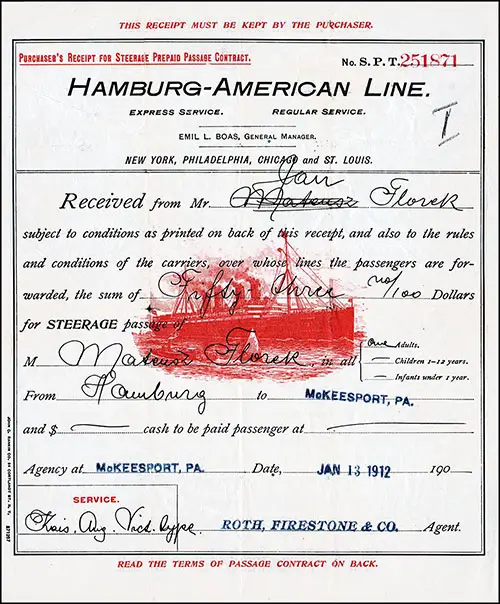 THIS RECEIPT MUST BE KEPT BY THE PURCHASER.
PURCHASER'S RECEIPT FOR STEERAGE PREPAID PASSAGE CONTRACT. No. S. P. T. 251871
HAMBURG-AMERICAN LINE.
EXPRESS SERVICE. REGULAR SERVICE.
I
EMIL L. BOAS, GENERAL MANAGER.
NEW YORK, PHILADELPHIA, CHICAGO AND ST. LOUIS.
Jan
Received from Mr. Mateusz Florek
subject to conditions as printed on back of this receipt, and also to the rules
and conditions of the carriers, over whose lines the passengers are for-
warded, the sum of Fifty three no/100 Dollars
for STEERAGE passage of
M Mateusz Florek, in all one Adults.
— Children 1–12 years.
— Infants under 1 year.
From Hamburg to McKEESPORT, PA.
and $ — cash to be paid passenger at —
Agency at McKEESPORT, PA. Date, JAN 13 1912 190
SERVICE.
Kais. Aug. Vict. type. ROTH, FIRESTONE & CO. Agent.
READ THE TERMS OF PASSAGE CONTRACT ON BACK.